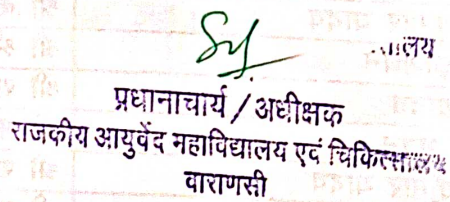 प्रधानाचार्य / अधीक्षक
राजकीय आयुर्वेद महाविद्यालय एवं चिकित्सालय
वाराणसी